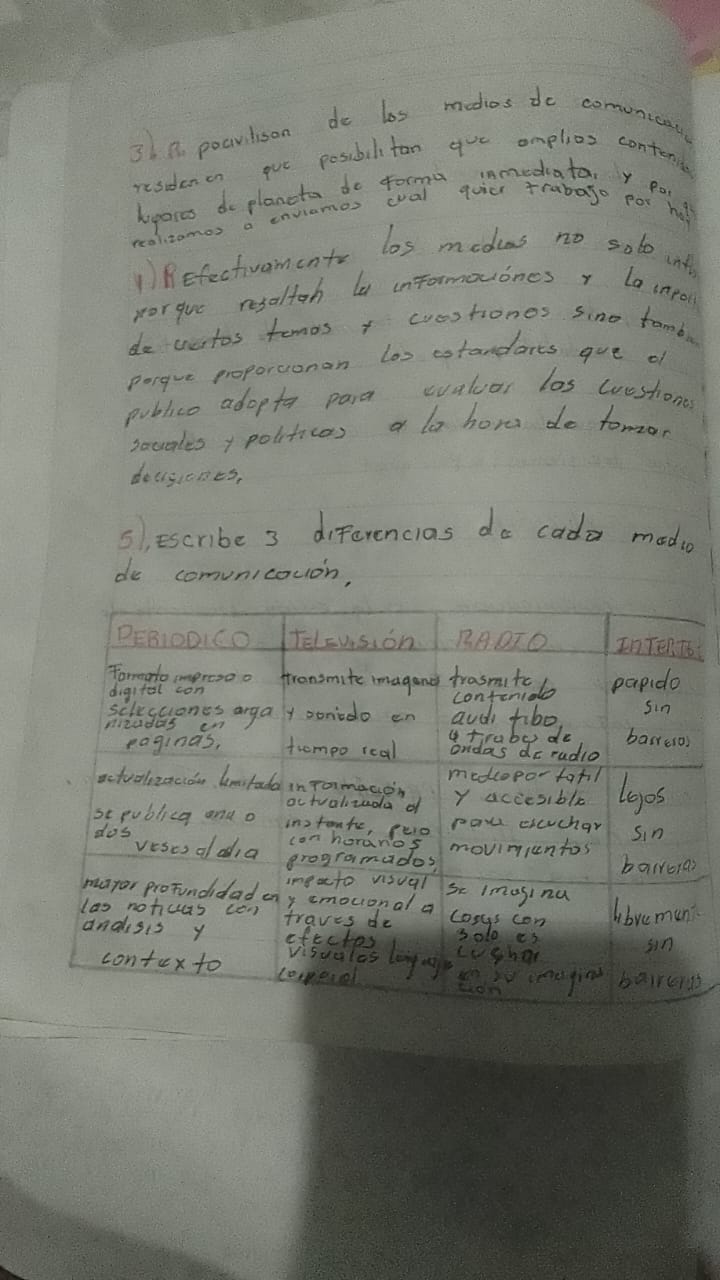 3). R. pocivilison de los medios de
residen en que posibilitan que amplios
de planeta de forma inmediata, y por
realizamos o enviamos cual quier trabajo por
4) R Efectivamente los medios no solo
porque resaltan la informaciones y la
de ciertos temas y cuestiones sino
porque proporcionan los estandares que el
publico adopta para evaluar las cuestiones
sociales y politicas a la hora de tomar
decisiones,
5), Escribe 3 diferencias de cada medio
de comunicación,
PERIODICO TELEVISIÓN RADIO
Formato impreso o
digital con
selecciones orga
nizadas en
paginas,
transmite imagene
y sonido en
tiempo real
trasmite
contenido
audi tibo,
a trabes de
ondas de radio
papido
sin
barreras
actualización limitada
se publica una o
dos
veses al dia
información
actualizada al
instante, pero
con horarios
programados,
medio portatil
y accesible
para escuchar
movimientos
lejos
sin
barreras
mayor profundidad en
las noticias con
analisis y
contexto
impacto visual
y emocional a
traves de
efectos
visuales lenguaje
corporal
se imagina
cosas con
solo es
cuchar
en su imagina
cion
libremente
sin
barreras